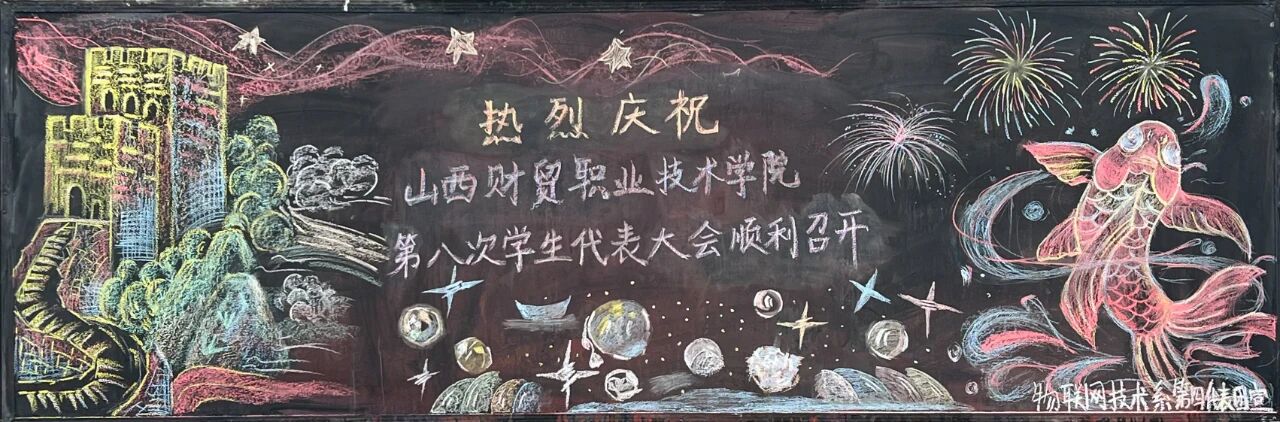 热烈庆祝
山西财贸职业技术学院
第八次学生代表大会顺利召开
物联网技术系第四代表团宣